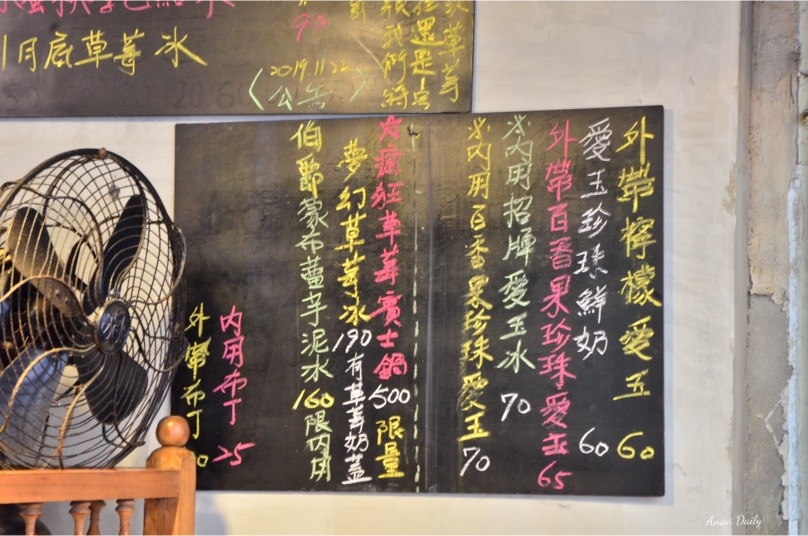 1月底草莓冰
90
2019.11.22
公告
外帶檸檬愛玉 60
愛玉珍珠鮮奶 60
外帶百香果珍珠愛玉 65
內用招牌愛玉冰 70
內用百香果珍珠愛玉 70
火瘋狂草莓賓士鍋 500 限量
夢幻草莓冰 190 有草莓奶蓋
伯爵蒙布蕾芋泥冰 160 限內用
內用布丁 25
外帶布丁
Anan Daily